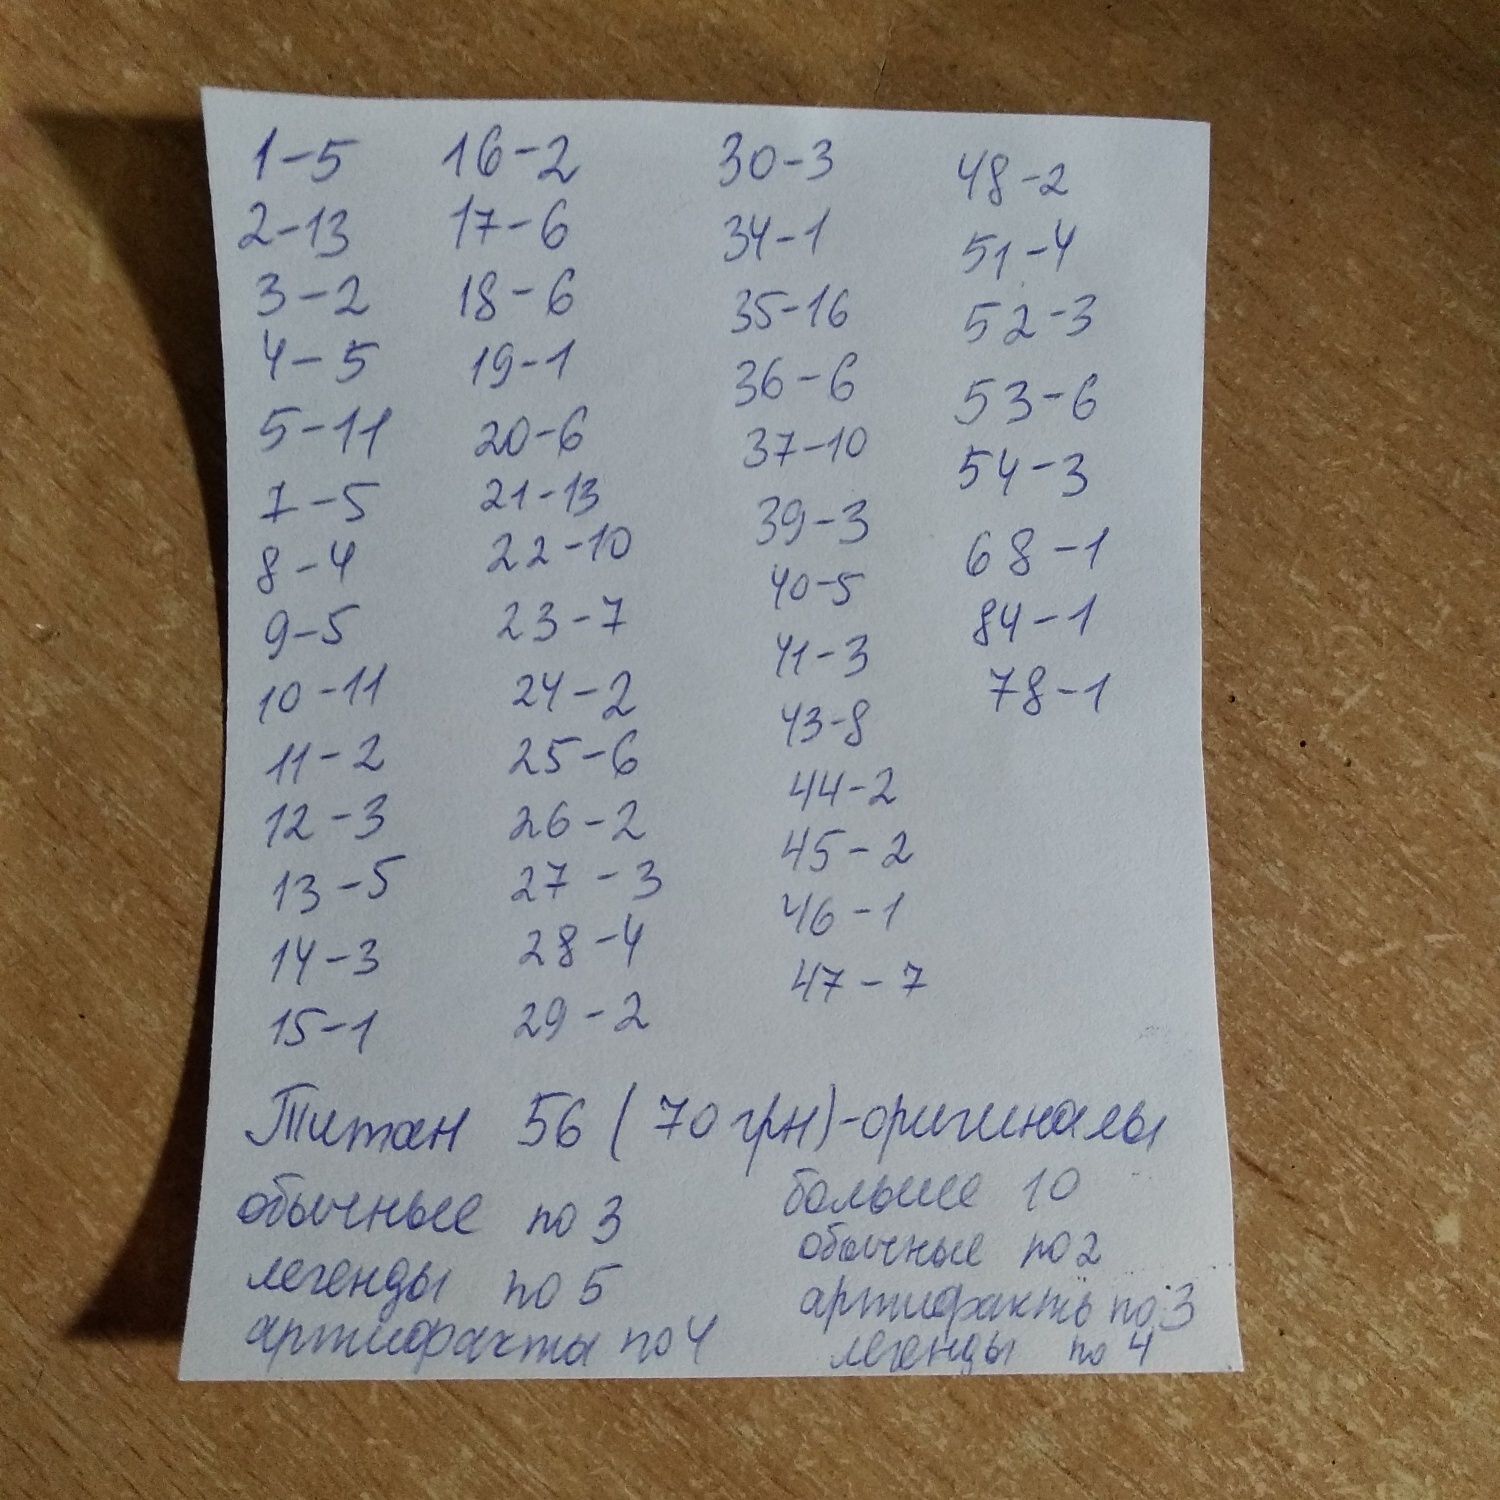 1-5
2-13
3-2
4-5
5-11
7-5
8-4
9-5
10-11
11-2
12-3
13-5
14-3
15-1
16-2
17-6
18-6
19-1
20-6
21-13
22-10
23-7
24-2
25-6
26-2
27-3
28-4
29-2
30-3
34-1
35-16
36-6
37-10
39-3
40-5
41-3
43-8
44-2
45-2
46-1
47-7
48-2
51-4
52-3
53-6
54-3
68-1
84-1
78-1
Титан 56 (70 грн)-оригиналы
обычные по 3
легенды по 5
артифакты по 4
больше 10
обычные по 2
артифакть по 3
легенды по 4